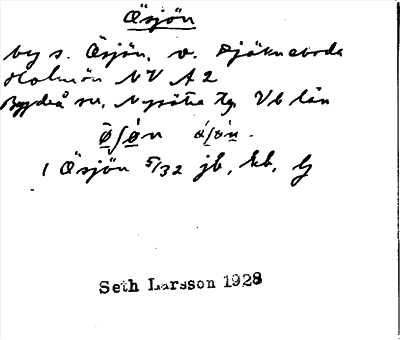 Ösjön
by s. Ösjön, v. Djäkneboda
Holmön NV A2
Bygdeå sn, Nysätra tg. Vb län
1 Ösjön 5/32 jb, kb, lj
Seth Larsson 1928